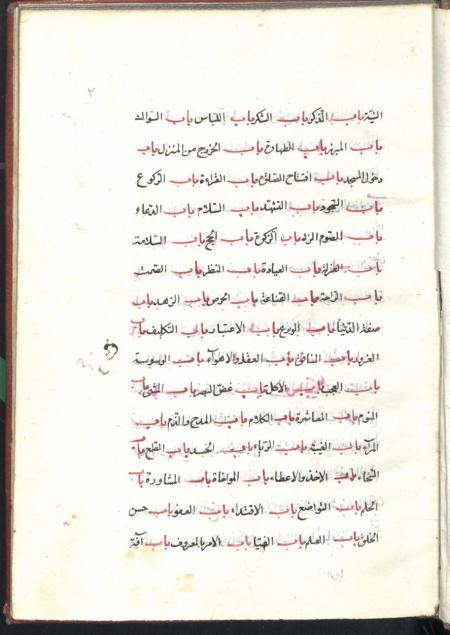 ٢
النية باب الذكر باب الشكر باب اللباس باب السواك
باب المبرز باب الطهارة باب الخروج من المنزل باب
دخول المسجد باب افتتاح الصلوة باب القراءة باب الركوع
باب السجود باب التشهد باب السلام باب الدعاء
باب الصوم باب الزكوة باب الحج باب السلامة
باب العزلة باب العبادة باب التفكر باب الصمت
باب الراحة باب القناعة باب الحرص باب الزهد باب
صفة الدنيا باب الورع باب الاعتبار باب التكليف باب
الغرور باب المنافق باب العقل والاهواء باب الوسوسة
باب العجب باب الاكل باب غض البصر باب المشى باب
النوم باب المعاشرة باب الكلام باب المدح والذم باب
المراء باب الغيبة باب الرياء باب الحسد باب الطمع باب
السخاء باب الاخذ والاعطاء باب المواخاة باب المشاورة باب
الحلم باب التواضع باب الاقتداء باب العفو باب حسن
الخلق باب العلم باب الفتيا باب الامر بالمعروف باب آفة